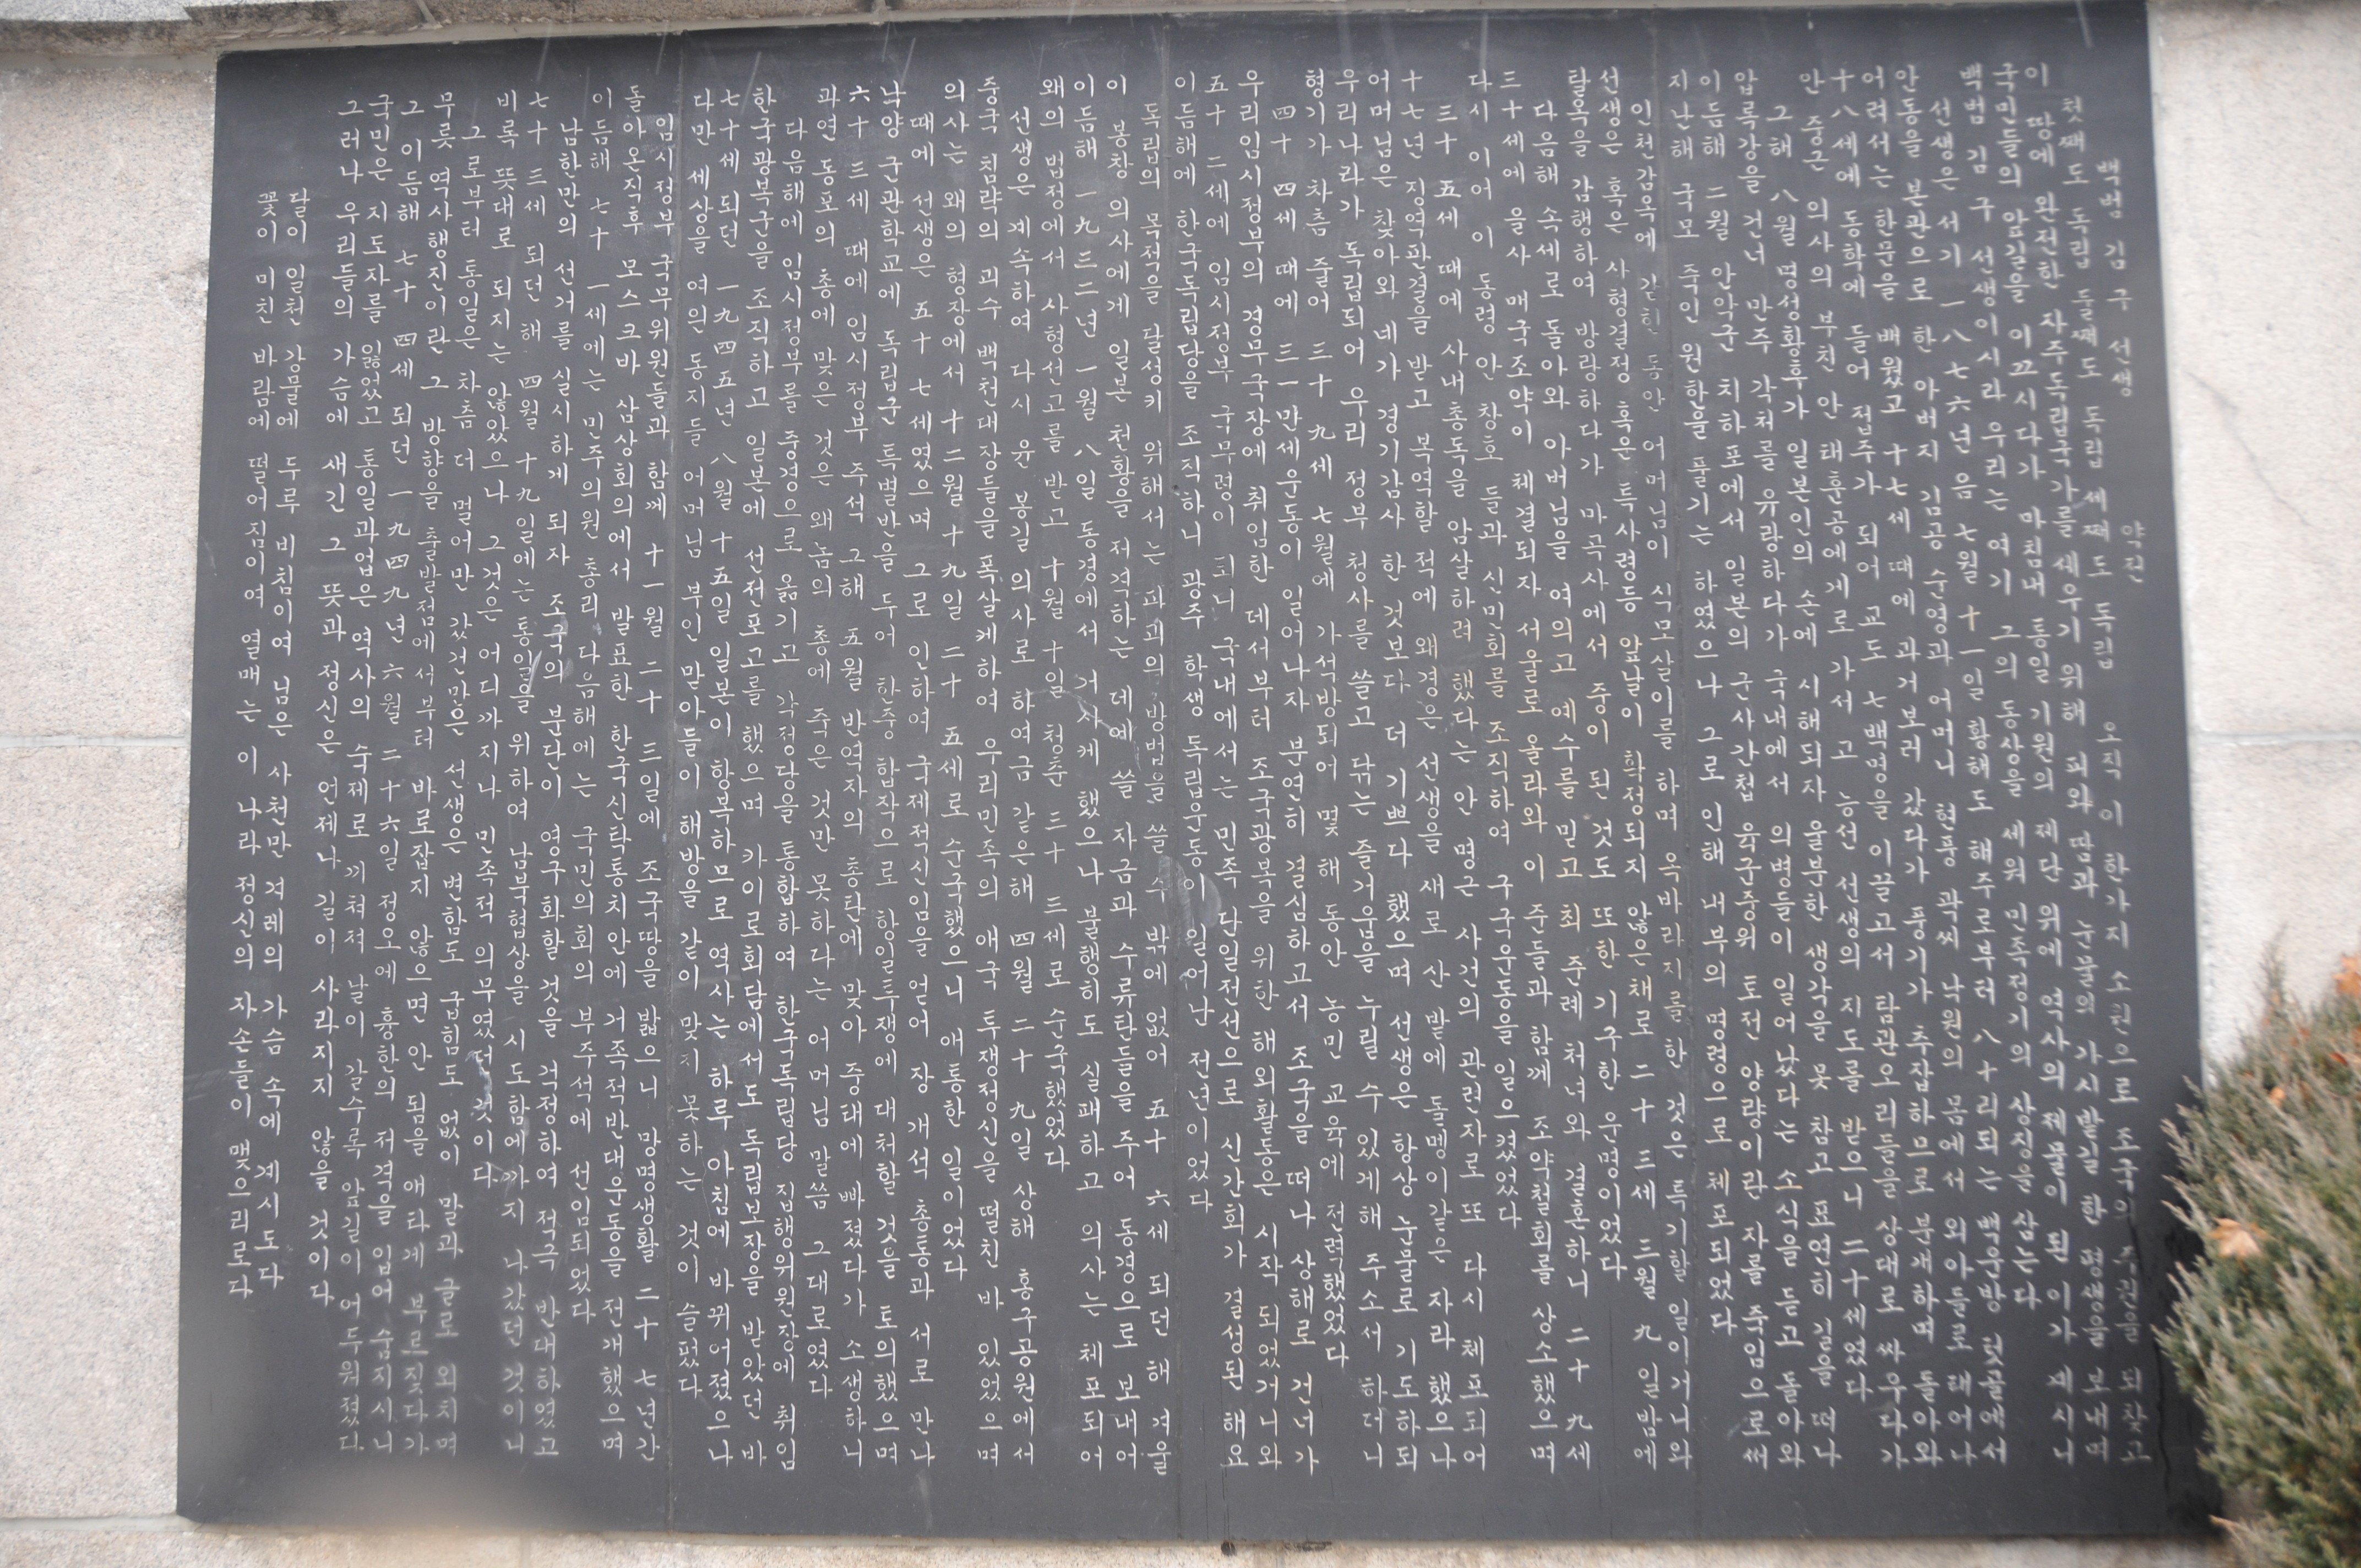 백범 김구 선생 약전
첫째도 독립 둘째도 독립 세째도 독립 오직 이 한가지 소원으로 조국의 주권을 되찾고
이 땅에 완전한 자주독립국가를 세우기 위해 피와 땀과 눈물의 가시밭길 한 평생을 보내며
국민들의 앞길을 이끄시다가 마침내 통일 기원의 제단 위에 역사의 제물이 된 이가 계시니
백범 김구 선생이시라 우리는 여기 그의 동상을 세워 민족정기의 상징을 삼는다
선생은 서기 一八七六년 음 七월 十一일 황해도 해주로부터 八十리되는 백운방 텃골에서
안동을 본관으로 한 아버지 김공 순영과 어머니 현풍 곽씨 낙원의 몸에서 외아들로 태어나
어려서는 한문을 배웠고 十七세 때에 과거보러 갔다가 풍기가 추잡하므로 분개하며 돌아와
十八세에 동학에 들어 접주가 되어 교도 七백명을 이끌고서 탐관오리들을 상대로 싸우다가
안 중근 의사의 부친 안 태훈공에게로 가서 고 능선 선생의 지도를 받으니 二十세였다
그해 八월 명성황후가 일본인의 손에 시해되자 울분한 생각을 못 참고 표연히 길을 떠나
압록강을 건너 만주 각처를 유랑하다가 국내에서 의병들이 일어났다는 소식을 듣고 돌아와
이듬해 二월 안악군 치하포에서 일본의 군사간첩 육군중위 토전 양량이란 자를 죽임으로써
지난해 국모 죽인 원한을 풀기는 하였으나 그로 인해 내부의 명령으로 체포되었다
인천감옥에 갇힌 동안 어머님이 식모살이를 하며 옥바라지를 한 것은 특기할 일이거니와
선생은 혹은 사형결정 혹은 특사령등 앞날이 확정되지 않은채로 二十三세 三월 九일밤에
탈옥을 감행하여 방랑하다가 마곡사에서 중이 된 것도 또한 기구한 운명이었다
다음해 속세로 돌아와 아버님을 여의고 예수를 믿고 최 준례 처녀와 결혼하니 二十九세
三十세에 을사 매국조약이 체결되자 서울로 올라와 이 준들과 함께 조약철회를 상소했으며
다시 이어 이 동령 안 창호 들과 신민회를 조직하여 구국운동을 일으켰었다
三十五세 때에 사내총독을 암살하려 했다는 안 명근 사건의 관련자로 또 다시 체포되어
十七년 징역판결을 받고 복역할 적에 왜경은 선생을 새로 산 밭에 돌멩이같은 자라 했으나
어머님은 찾아와 네가 경기감사 한 것보다 더 기쁘다 했으며 선생은 항상 눈물로 기도하되
우리나라가 독립되어 우리 정부 청사를 쓸고 닦는 즐거움을 누릴 수 있게해 주소서 하더니
형기가 차츰 줄어 三十九세 七월에 가석방되어 몇 해 동안 농민 교육에 전력했었다
四十四세 때에 三一만세운동이 일어나자 분연히 결심하고서 조국을 떠나 상해로 건너가
우리임시정부의 경무국장에 취임한 데서부터 조국광복을 위한 해외활동은 시작되었거니와
五十二세에 임시정부 국무령이 되니 국내에서는 민족 단일전선으로 신간회가 결성된 해요
이듬해에 한국독립당을 조직하니 광주 학생 독립운동이 일어난 전년이었다
독립의 목적을 달성키 위해서는 파괴의 방법을 쓸 수 밖에 없어 五十六세 되던 해 겨울
이 봉창 의사에게 일본 천황을 저격하는 데에 쓸 자금과 수류탄들을 주어 동경으로 보내어
이듬해 一九三二년 一월 八일 동경에서 거사케 했으나 불행히도 실패하고 의사는 체포되어
왜의 법정에서 사형선고를 받고 十월 十일 청춘 三十三세로 순국했었다
선생은 계속하여 다시 윤 봉길 의사로 하여금 같은해 四월 二十九일 상해 홍구공원에서
중국 침략의 괴수 백천대장들을 폭살케하여 우리민족의 애국 투쟁정신을 떨친 바 있었으며
의사는 왜의 형장에서 十二월 十九일 二十五세로 순국했으니 애통한 일이었다
때에 선생은 五十七세였으며 그로 인하여 국제적신임을 얻어 장 개석 총통과 서로 만나
낙양 군관학교에 독립군 특별반을 두어 한중 합작으로 항일투쟁에 대처할 것을 토의했으며
六十三세 때에 임시정부 주석 그해 五월 반역자의 총탄에 맞아 중태에 빠졌다가 소생하니
과연 동포의 총에 맞은 것은 왜놈의 총에 죽은 것만 못하다는 어머님 말씀 그대로였다
다음해에 임시정부를 중경으로 옮기고 각정당을 통합하여 한국독립당 집행위원장에 취임
한국광복군을 조직하고 일본에 선전포고를 했으며 카이로회담에서도 독립보장을 받았던 바
七十세 되던 一九四五년 八월 十五일 일본이 항복하므로 역사는 하루 아침에 바뀌어졌으나
다만 세상을 여읜 동지들 어머님 부인 맏아들이 해방을 같이 맞지 못하는 것이 슬펐다
임시정부 국무위원들과 함께 十一월 二十三일에 조국땅을 밟으니 망명생활 二十七년간
돌아온직후 모스크바 삼상회의에서 발표한 한국신탁통치안에 거족적반대운동을 전개했으며
이듬해 七十一세에는 민주의원 총리 다음해에는 국민의회의 부주석에 선임되었다
남한만의 선거를 실시하게 되자 조국의 분단이 영구화할 것을 걱정하여 적극 반대하였고
七十三세 되던 해 四월 十九일에는 통일을 위하여 남북협상을 시도함에까지 나갔던 것이니
비록 뜻대로 되지는 않았으나 그것은 어디까지나 민족적 의무였던 것이다
그로부터 통일은 차츰 더 멀어만 갔건만은 선생은 변함도 굽힘도 없이 말과 글로 외치며
무릇 역사행진이란 그 방향을 출발점에서부터 바로잡지 않으면 안 됨을 애타게 부르짖다가
그 이듬해 七十四세 되던 一九四九년 六월 二十六일 정오에 흉한의 저격을 입어 숨지시니
국민은 지도자를 잃었고 통일과업은 역사의 숙제로 끼쳐져 날이 갈수록 앞길이 어두워졌다
그러나 우리들의 가슴에 새긴 그 뜻과 정신은 언제나 길이 사라지지 않을 것이다
달이 일천 강물에 두루 비침이여 님은 사천만 겨레의 가슴 속에 계시도다
꽃이 미친 바람에 떨어짐이여 열매는 이 나라 정신의 자손들이 맺으리로다